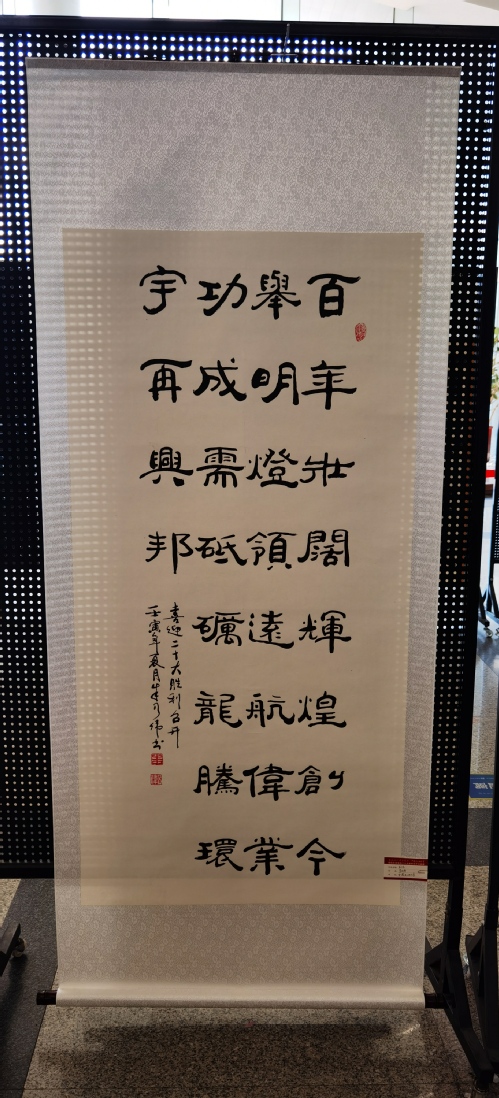 百年壯闊輝煌創今
舉明燈領遠航偉業
功成需砥礪龍騰環
宇再興邦
喜迎二十大胜利召开
壬寅年夏月
书